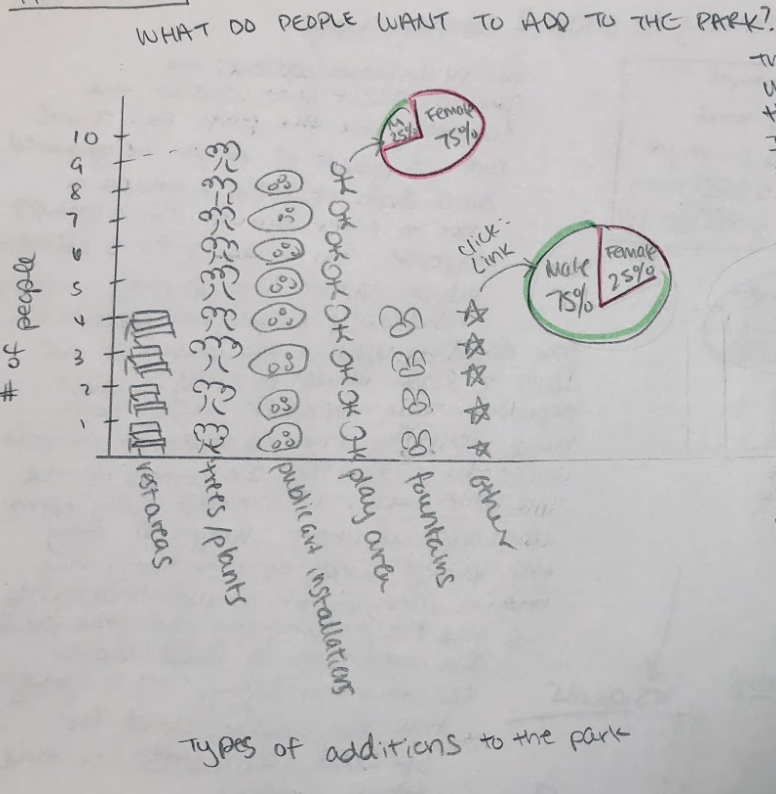 WHAT DO PEOPLE WANT TO ADD TO THE PARK?
M
25%
Female
75%
10
9
8
7
6
5
4
3
2
1
# of people
click:
Link
Male
75%
Female
25%
rest areas
trees/plants
public art installations
play area
fountains
other
Types of additions to the park